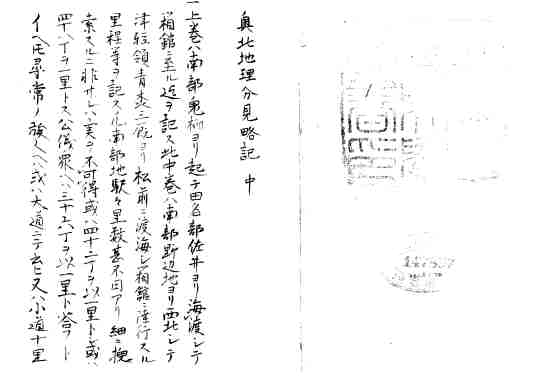 奥北地理分見略記 中
一上巻ハ南部鬼柳ヨリ起テ田名部佐井ヨリ海渡シテ
箱館ニ至ル迄ヲ記ス此中巻ハ南部野辺地ヨリ西北シテ
津軽領青森三厩ヨリ松前ニ渡海シ箱館ニ陸行スル
里程等ヲ記スル南部地駅々里数甚不同アリ細ニ捜
索スルニ非サレハ実ヲ不可得或ハ四十二丁ヲ以一里ト或ハ
四十八丁ヲ一里トス公儀衆ヘハ三十六丁ヲ以一里ト答フト
イヘトモ尋常ノ旅人ヘハ或ハ大道ニテ云ヒ又ハ小道十里